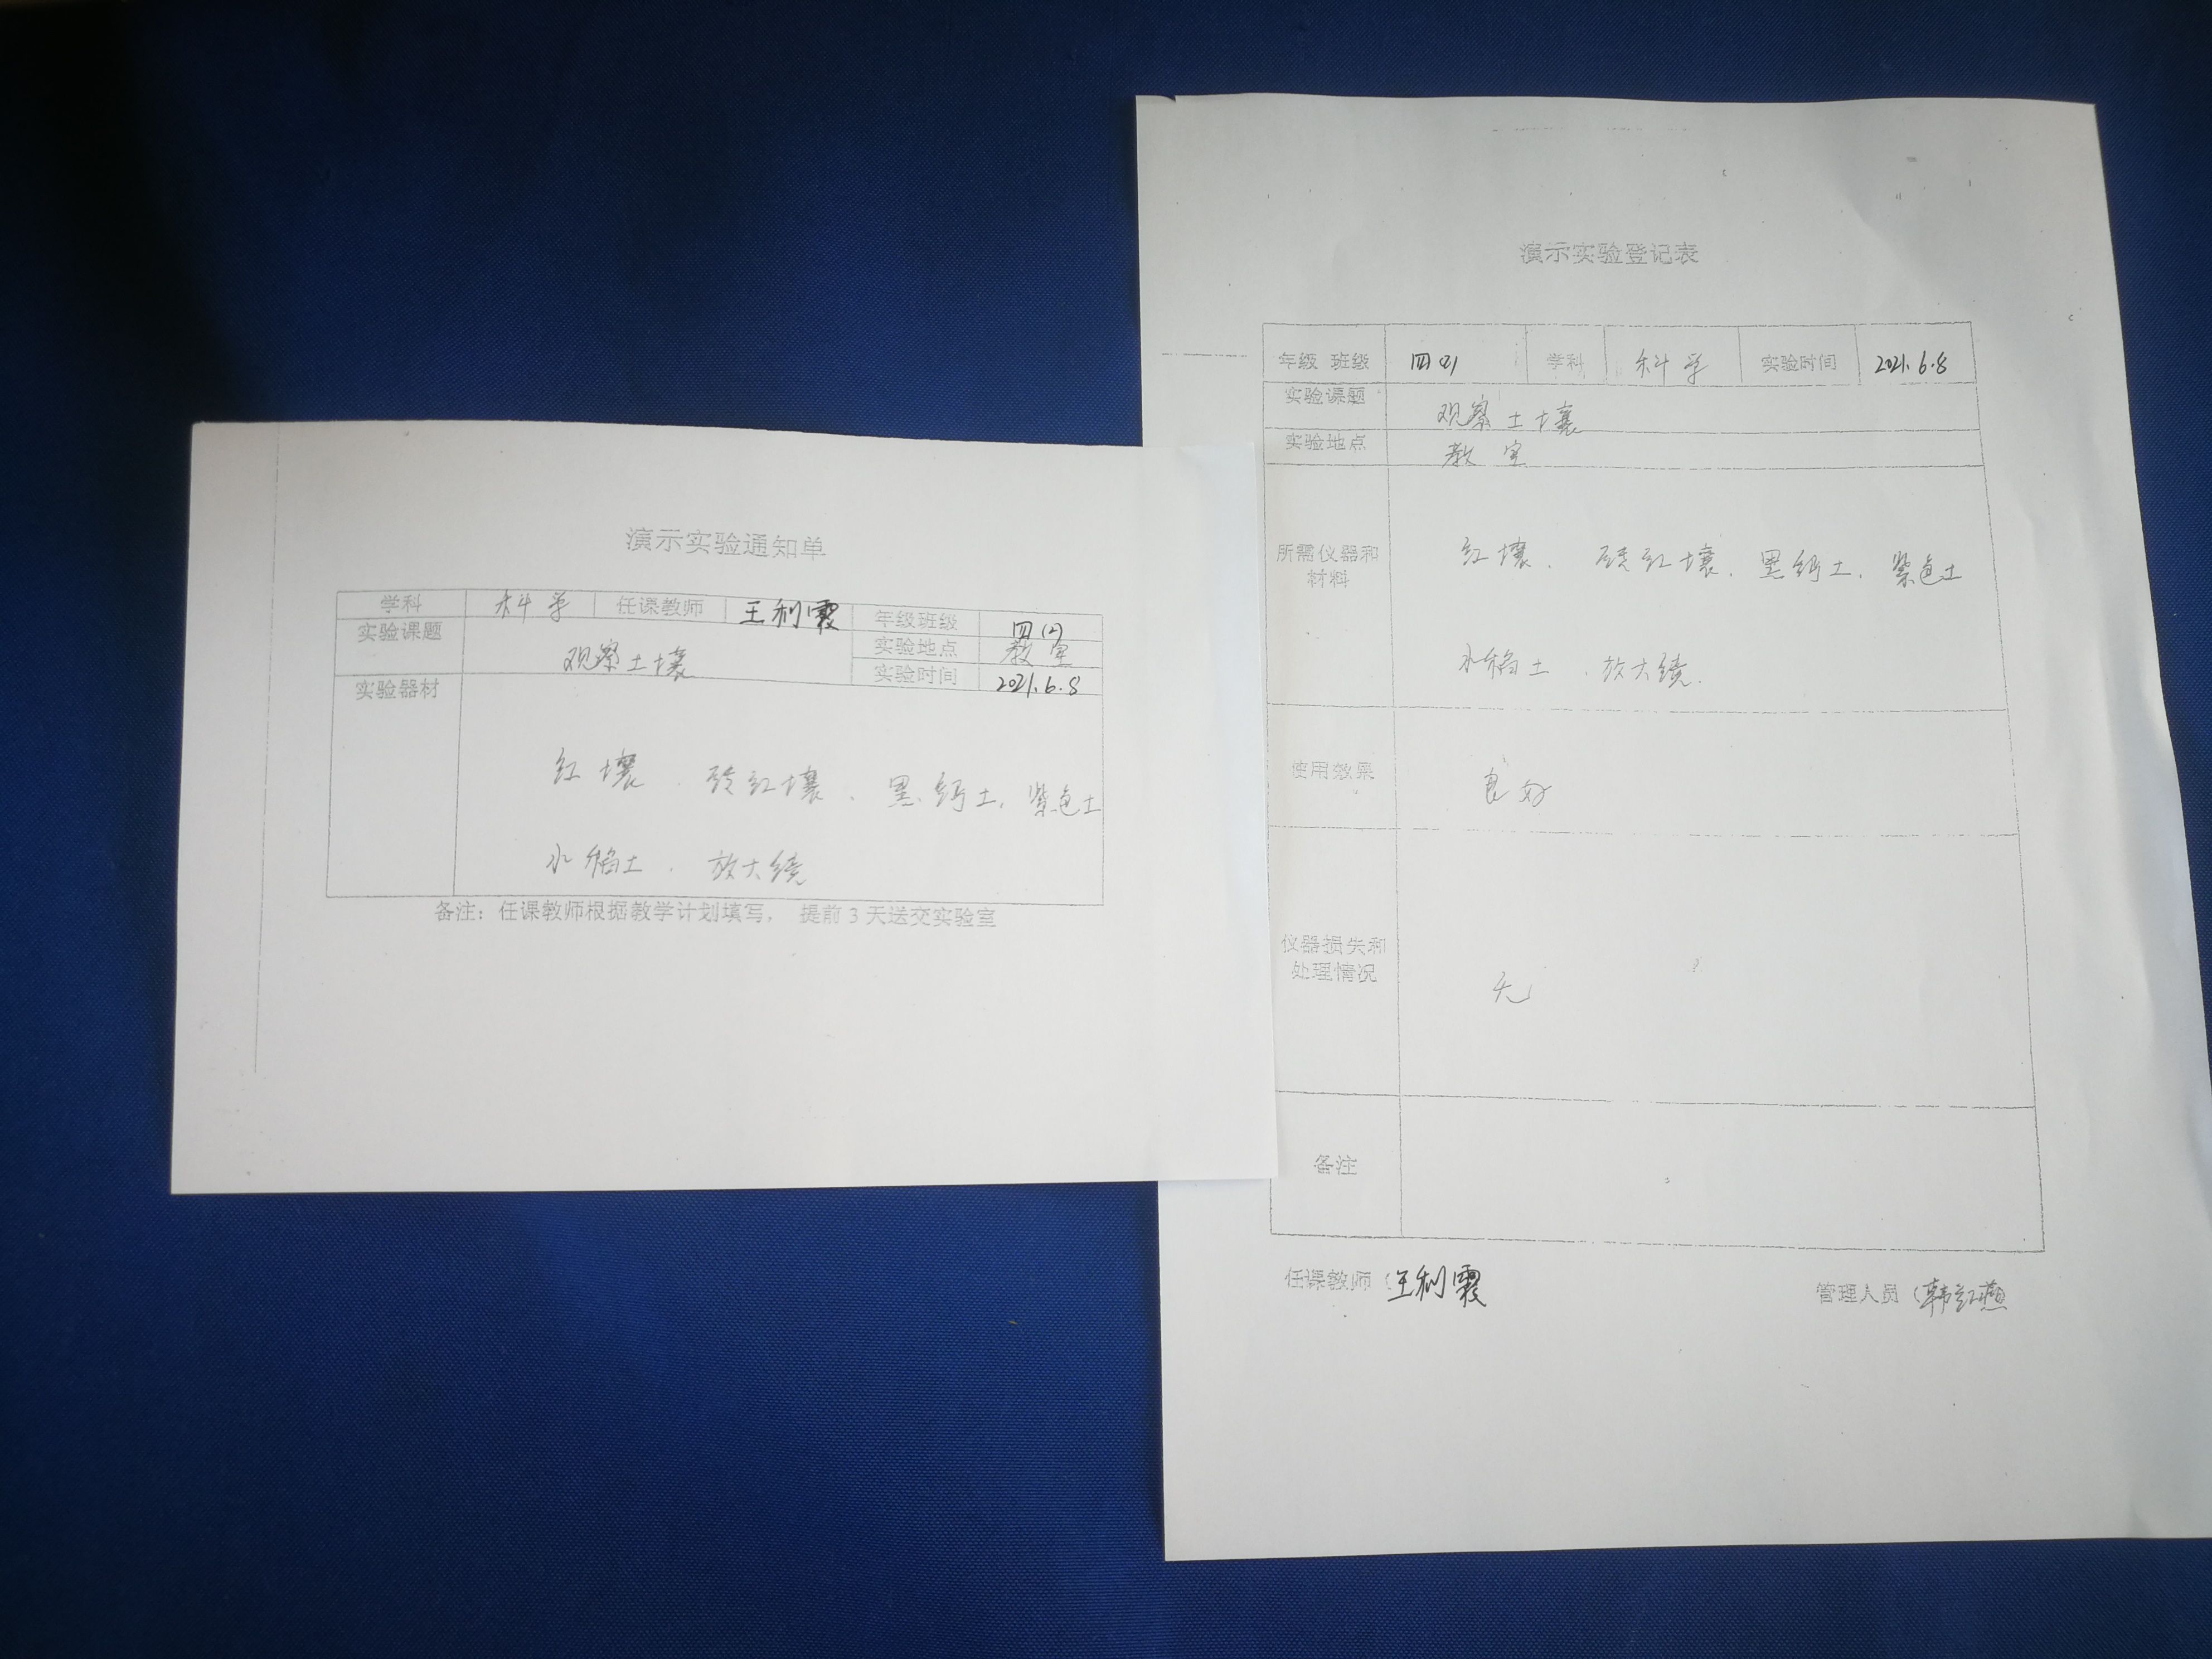 演示实验通知单
学科 科学 任课教师 王利霞 年级班级 四(2)
实验课题 观察土壤 实验地点 教室
实验时间 2021.6.8
实验器材
红壤、砖红壤、黑钙土、紫色土
水稻土、放大镜
备注：任课教师根据教学计划填写， 提前3天送交实验室
演示实验登记表
年级 班级 四(2) 学科 科学 实验时间 2021.6.8
实验课题 观察土壤
实验地点 教室
所需仪器和
材料
红壤、砖红壤、黑钙土、紫色土
水稻土、放大镜.
使用效果 良好
仪器损失和
处理情况
无
备注
任课教师（王利霞 管理人员（韩红燕